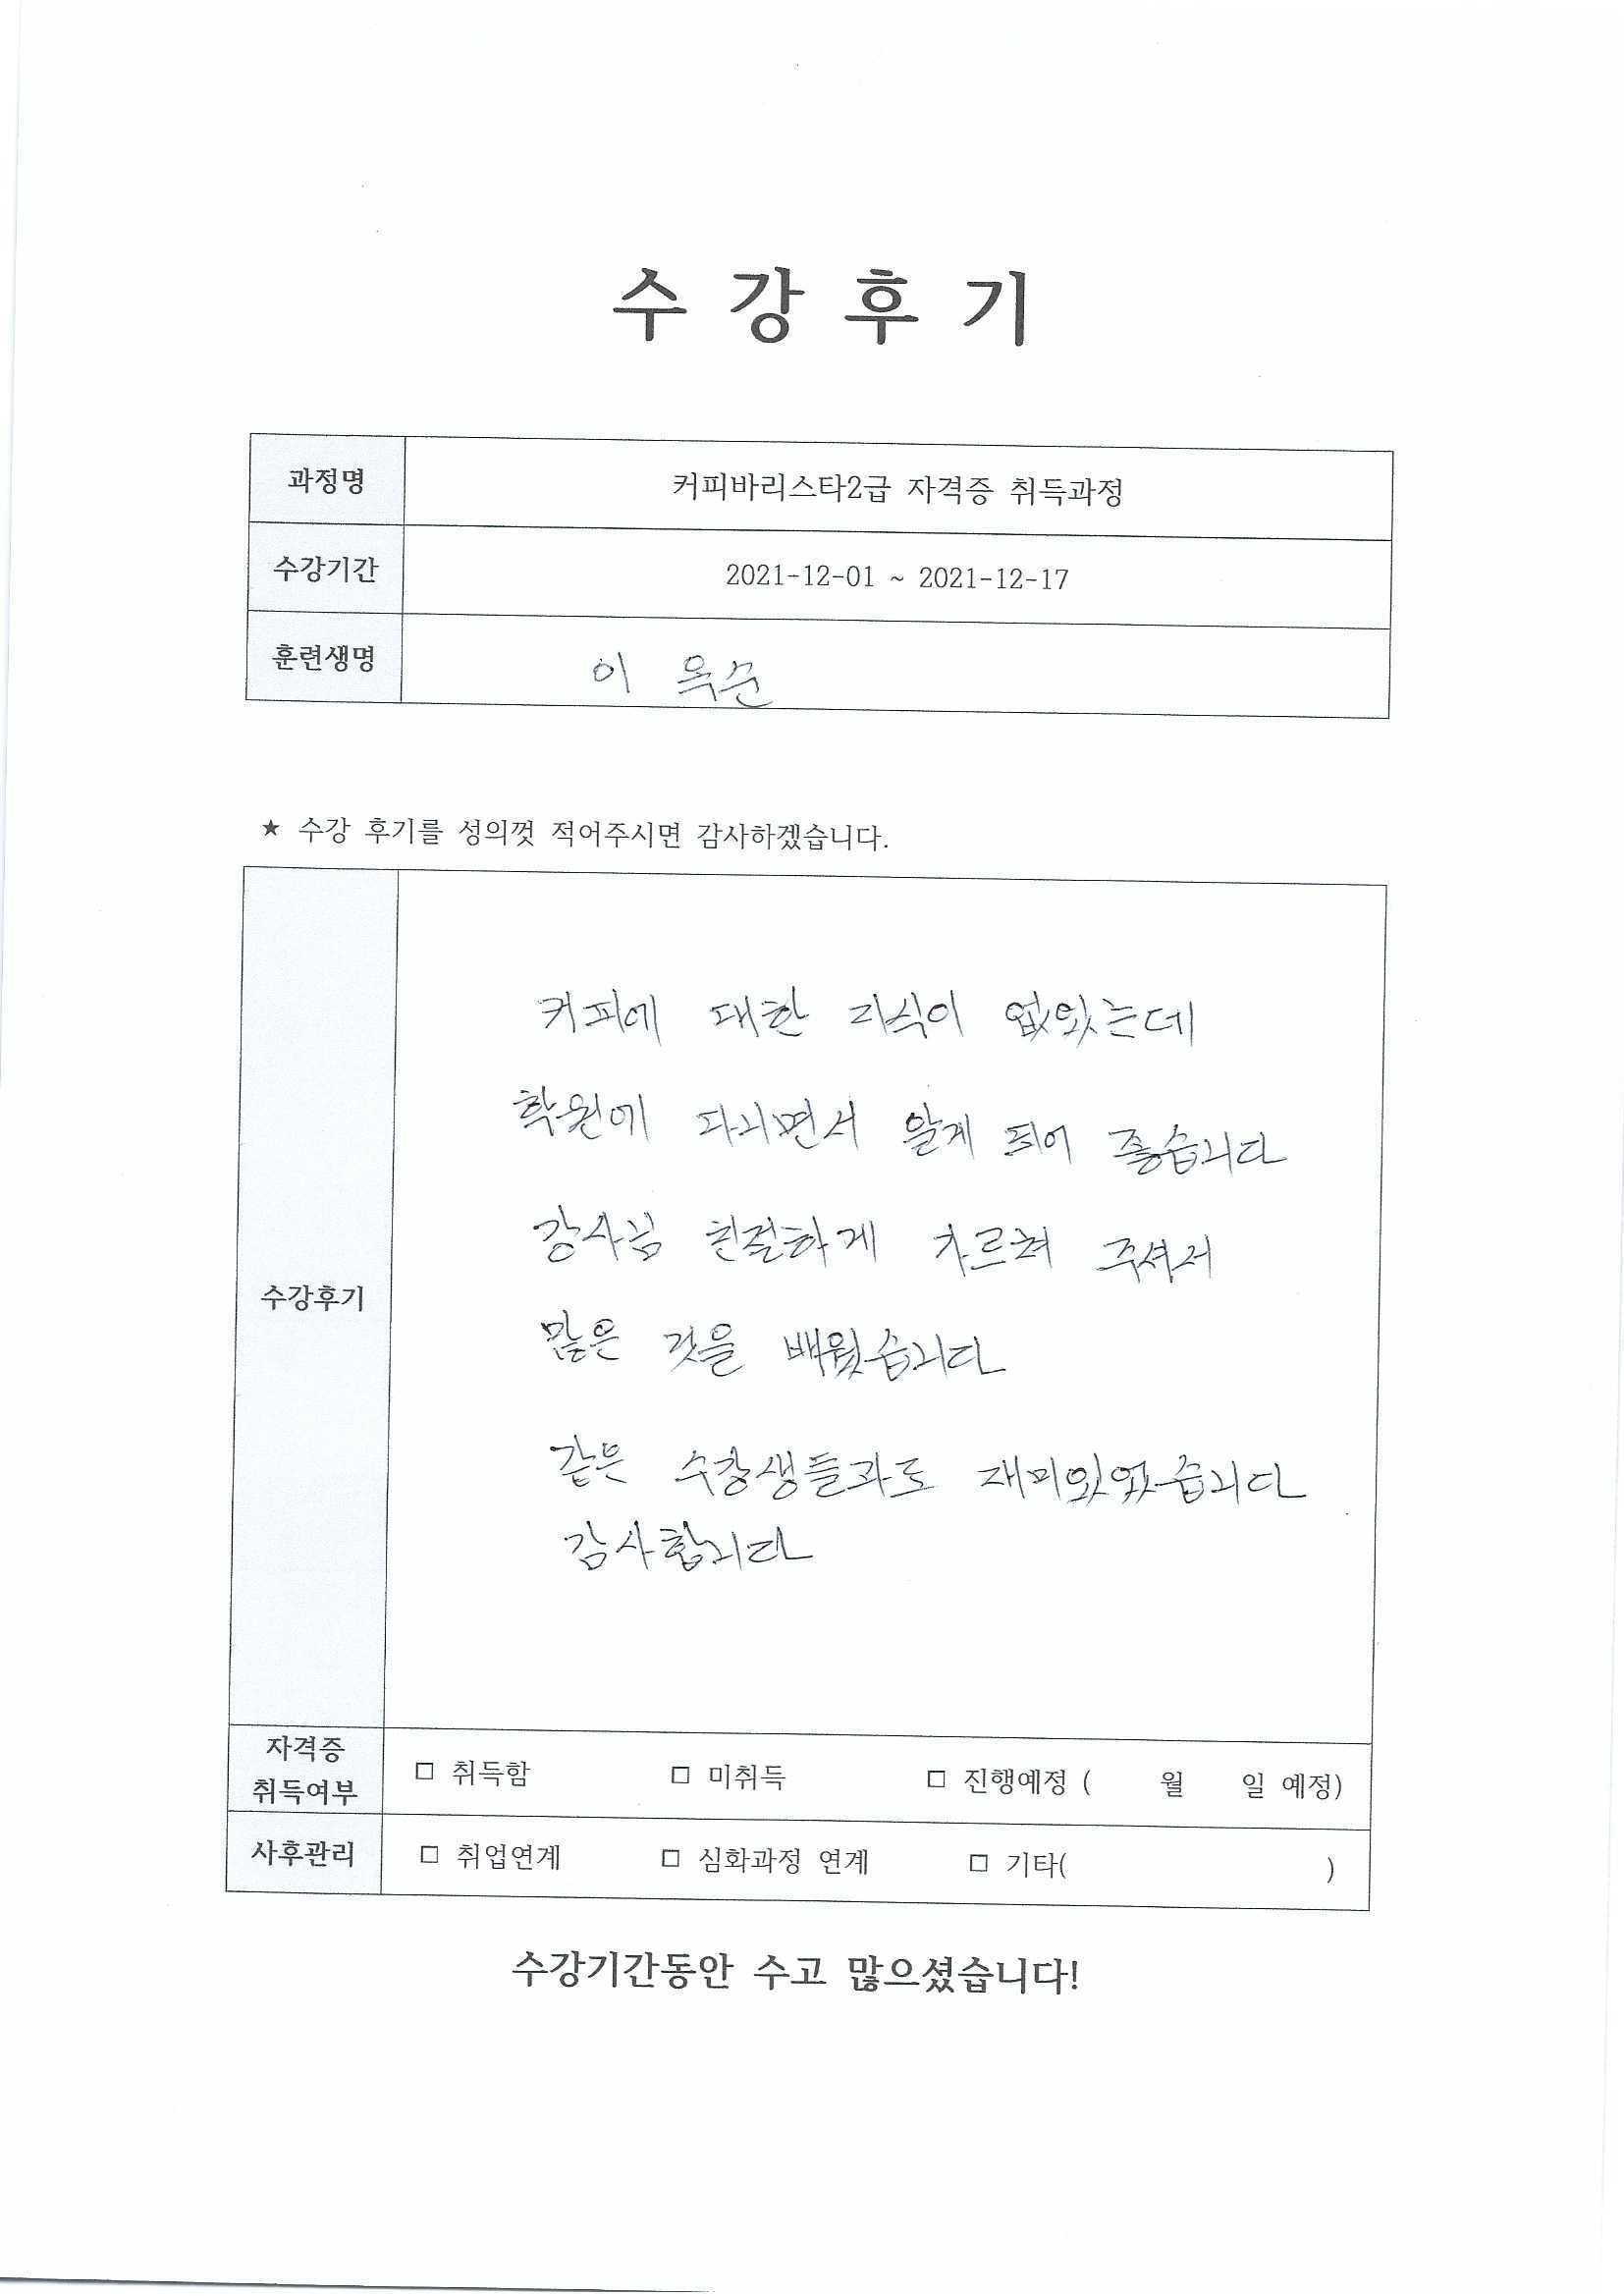 수 강 후 기
과정명 커피바리스타2급 자격증 취득과정
수강기간 2021-12-01 ~ 2021-12-17
훈련생명 이 옥순
★ 수강 후기를 성의껏 적어주시면 감사하겠습니다.
수강후기
커피에 대한 지식이 없었는데
학원에 다니면서 알게 되어 좋습니다
강사님 친절하게 가르쳐 주셔서
많은 것을 배웠습니다
같은 수강생들과도 재미있었습니다
감사합니다
자격증
취득여부
□ 취득함 □ 미취득 □ 진행예정 ( 월 일 예정)
사후관리 □ 취업연계 □ 심화과정 연계 □ 기타( )
수강기간동안 수고 많으셨습니다!